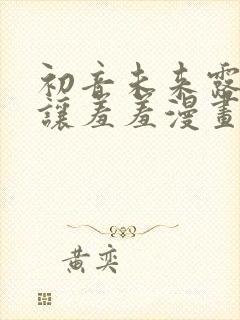 初音未来露
讓羞羞漫畫
黄奕